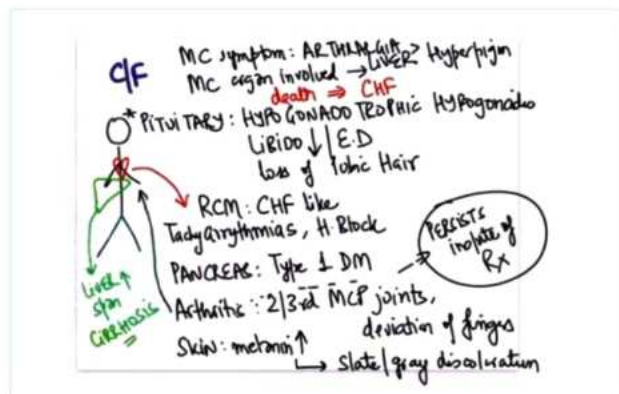 C/F
MC symptom: ARTHRALGIA > Hyperpigm
MC organ involved → LIVER
death ⇒ CHF
* PITUITARY: HYPOGONADOTROPHIC HYPOGONADIS
LIBIDO ↓ | E.D
loss of Pubic Hair
RCM: CHF like
Tachyarrythmias, H. Block
PANCREAS: Type 1 DM
PERSISTS
inspite of
Rx
Arthritis ∵ 2/3rd MCP joints,
deviation of finges
Skin: melanin ↑
↳ Slate/gray discoloration
LIVER ↑
span
CIRRHOSIS